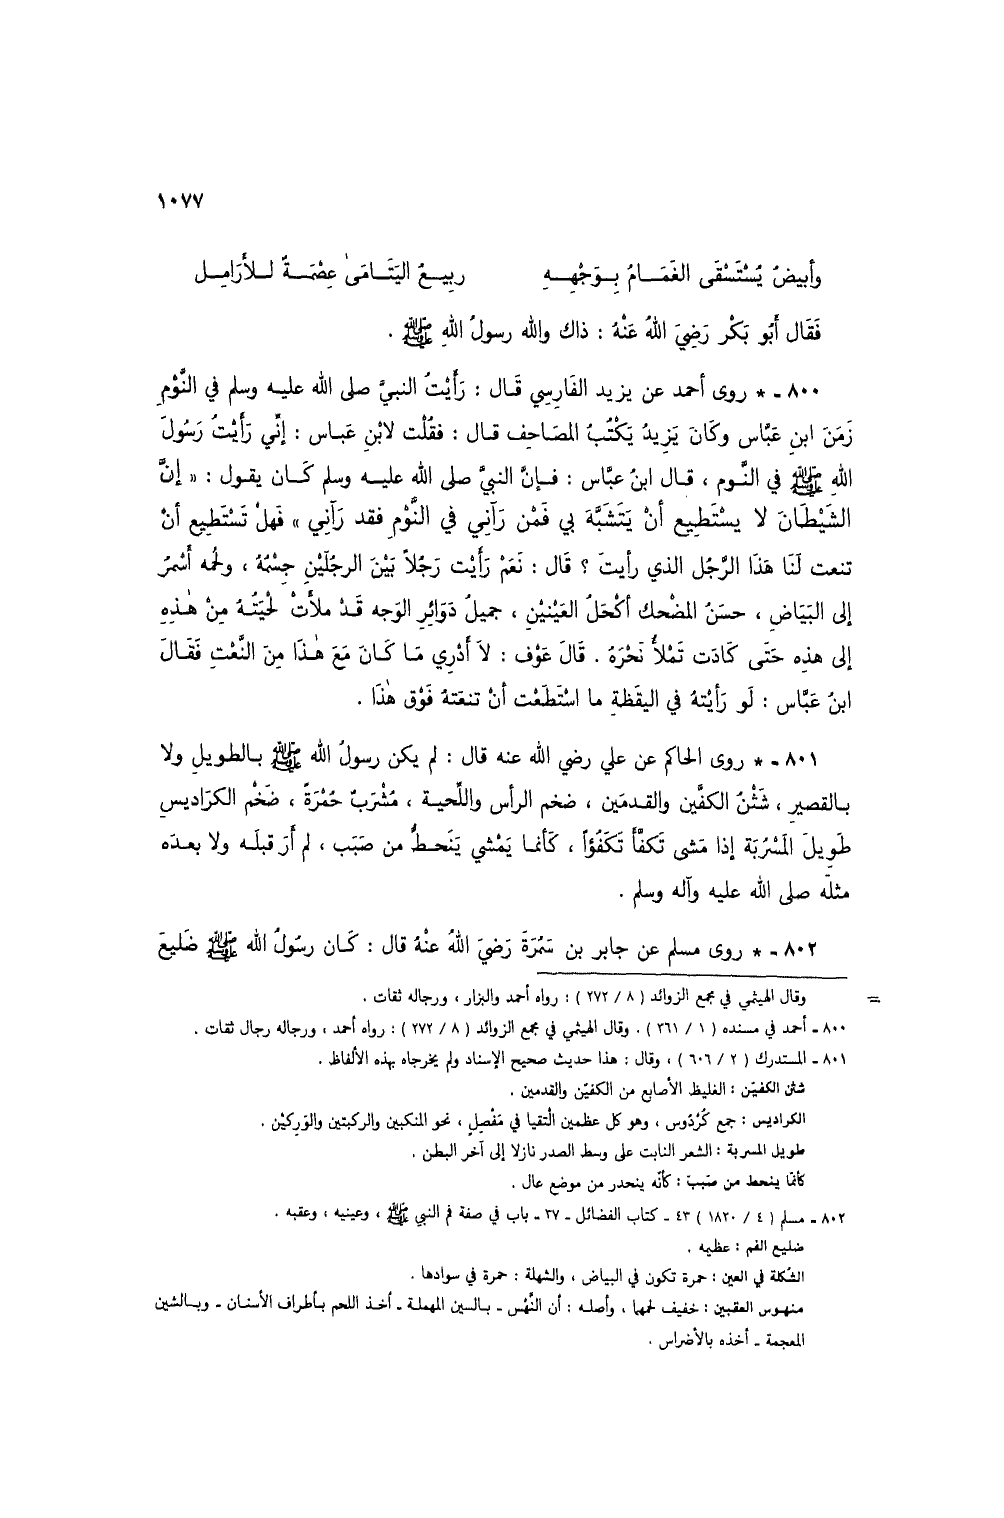 ١٠٧٧
وأبيضُ يُسْتَسْقَى الغَمَـــامُ بِــوَجْهِــهِ ربِيــعُ اليَتَــامَىٰ عِصْمَــةٌ لــلأَرَامِــل
فَقَال أَبُو بَكْر رَضِيَ اللهُ عَنْهُ : ذاك والله رسولُ اللهِ ﷺ .
٨٠٠ ـ * روى أحمد عن يزيد الفَارِسي قَـال : رَأَيْتُ النبيَّ صلى الله عليـه وسلم في النَّوْمِ
زَمَنَ ابنِ عَبَّاس وكَانَ يَزِيدُ يَكْتُبُ المصَاحِف قـال : فقُلْت لابْنِ عَبـاس : إنِّي رَأَيْتُ رَسُولَ
اللهِ ﷺ في النَّـوم ، قـال ابنُ عبَّاس : فـإنَّ النبيَّ صلى الله عليـه وسلم كَـان يقول : « إنَّ
الشَيْطَانَ لا يسْتَطِيع أنْ يَتَشبَّهَ بي فَمْن رَآنِي في النَّوْمِ فقد رَآنِي » فَهلْ تَسْتَطِيع أنْ
تنعت لَنَا هَذَا الرَّجُل الذي رأيتَ ؟ قَال : نَعَمْ رَأَيْت رَجُلاً بَيْنَ الرجُلَيْنِ جِسْمُهُ ، ولَحُمه أَسْمُرُ
إلى البَيَاضِ ، حسَنُ المضْحك أَكْحَلُ العَيْنيْنِ ، جميلُ دَوَائِرِ الوَجه قَـدْ ملأتْ لحْيَتُـهُ مِنْ هٰـذِهِ
إلى هذِه حَتَى كَادَت تَمْلأُ نَحْرَهُ . قَالَ عَوْف : لاَ أَدْرِي مَـا كَـانَ مَعَ هٰـذَا مِنَ النَّعْتِ فَقَـالَ
ابنُ عَبَّاس : لَو رَأيْتهُ في اليقَظةِ ما اسْتَطَعْت أنْ تنعَتهُ فَوْق هٰذَا .
٨٠١ ـ * روى الحاكم عن علي رضي الله عنه قال : لم يكن رسولُ الله ﷺ بـالطويلِ ولا
بـالقصيرِ ، شَثْنُ الكفَّين والقـدمَين ، ضخم الرأس واللِّحيـة ، مُشْرَبٌ حُمْرَةً ، ضَخْم الكرَاديسِ
طَوِيلَ المَسْرُبَة إذا مَشى تَكفَّأَ تَكَفُؤاً ، كَأَنمـا يَمْشي يَنَحـطُّ من صَبَب ، لم أرَ قبلَـه ولا بعـدَه
مثلَه صلى الله عليه وآله وسلم .
٨٠٢ ـ * روى مسلم عن جابر بن سَمُرَةَ رَضِيَ اللهُ عنْهُ قال : كَـان رسُولُ الله ﷺ ضَليعَ
= وقال الهيثمي في مجمع الزوائد ( ٨ / ٢٧٢ ) : رواه أحمد والبزار ، ورجاله ثقات .
٨٠٠ ـ أحمد في مسنده ( ١ / ٣٦١ ) . وقال الهيثمي في مجمع الزوائد ( ٨ / ٢٧٢ ) : رواه أحمد ، ورجاله رجال ثقات .
٨٠١ ـ المستدرك ( ٢ / ٦٠٦ ) ، وقال : هذا حديث صحيح الإسناد ولم يخرجاه بهذه الألفاظ .
شثن الكفيّن : الغليظ الأصابع من الكفيّن والقدمين .
الكراديس : جمع كُرْدُوس ، وهو كل عظمين الْتقيا في مَفْصِلٍ ، نحو المنكبين والركبتين والوَرِكيْن .
طويل المسربة : الشعر النابت على وسط الصدر نازلا إلى آخر البطن .
كأنمّا ينحط من صَبَبِ : كأنّه ينحدر من موضع عال .
٨٠٢ ـ مسلم ( ٤ / ١٨٢٠ ) ٤٣ ـ كتاب الفضائل ـ ٢٧ ـ باب في صفة فم النبي ﷺ ، وعينيه ، وعقبه .
ضليع الفم : عظيمه .
الشكلة في العين : حمرة تكون في البياض ، والشهلة : حمرة في سوادها .
منهوس العقبين : خفيف لحمها ، وأصلـه : أن النَّهْس ـ بـالسين المهملة ـ أخـذ اللحم بـأطراف الأسنـان ـ وبـالشين
المعجمة ـ أخذه بالأضراس .